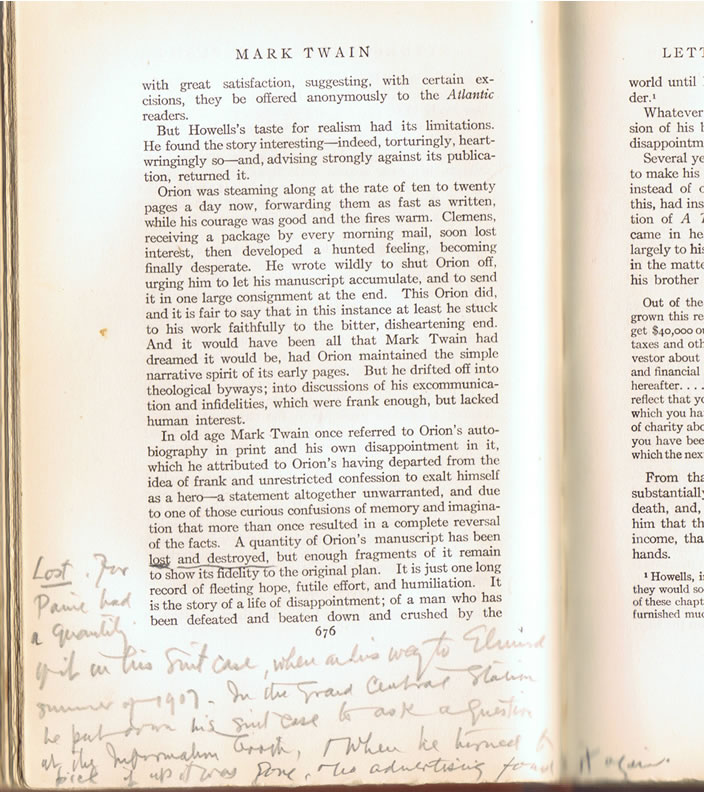 MARK TWAIN
with great satisfaction, suggesting, with certain ex-
cisions, they be offered anonymously to the Atlantic
readers.
But Howells's taste for realism had its limitations.
He found the story interesting—indeed, torturingly, heart-
wringingly so—and, advising strongly against its publica-
tion, returned it.
Orion was steaming along at the rate of ten to twenty
pages a day now, forwarding them as fast as written,
while his courage was good and the fires warm. Clemens,
receiving a package by every morning mail, soon lost
interest, then developed a hunted feeling, becoming
finally desperate. He wrote wildly to shut Orion off,
urging him to let his manuscript accumulate, and to send
it in one large consignment at the end. This Orion did,
and it is fair to say that in this instance at least he stuck
to his work faithfully to the bitter, disheartening end.
And it would have been all that Mark Twain had
dreamed it would be, had Orion maintained the simple
narrative spirit of its early pages. But he drifted off into
theological byways; into discussions of his excommunica-
tion and infidelities, which were frank enough, but lacked
human interest.
In old age Mark Twain once referred to Orion's auto-
biography in print and his own disappointment in it,
which he attributed to Orion's having departed from the
idea of frank and unrestricted confession to exalt himself
as a hero—a statement altogether unwarranted, and due
to one of those curious confusions of memory and imagina-
tion that more than once resulted in a complete reversal
of the facts. A quantity of Orion's manuscript has been
lost and destroyed, but enough fragments of it remain
to show its fidelity to the original plan. It is just one long
record of fleeting hope, futile effort, and humiliation. It
is the story of a life of disappointment; of a man who has
been defeated and beaten down and crushed by the
676
Lost. For
Paine had
a quantity
of it in his suit case, when on his way to Elmira
summer of 1907. In the Grand Central Station
he put down his suit case to ask a question
at the Information booth, & when he turned to
pick it up it was gone. No advertising found it again.
LETT
world until
der.¹
Whatever
sion of his
disappointm
Several ye
to make his
instead of
this, had ins
tion of A
came in he
largely to his
in the matte
his brother
Out of the
grown this re
get $40,000 o
taxes and oth
vestor about
and financial
hereafter. . . .
reflect that yo
which you ha
of charity abo
you have bee
which the nex
From tha
substantially
death, and,
him that th
income, tha
hands.
¹ Howells, i
they would so
of these chapt
furnished muc